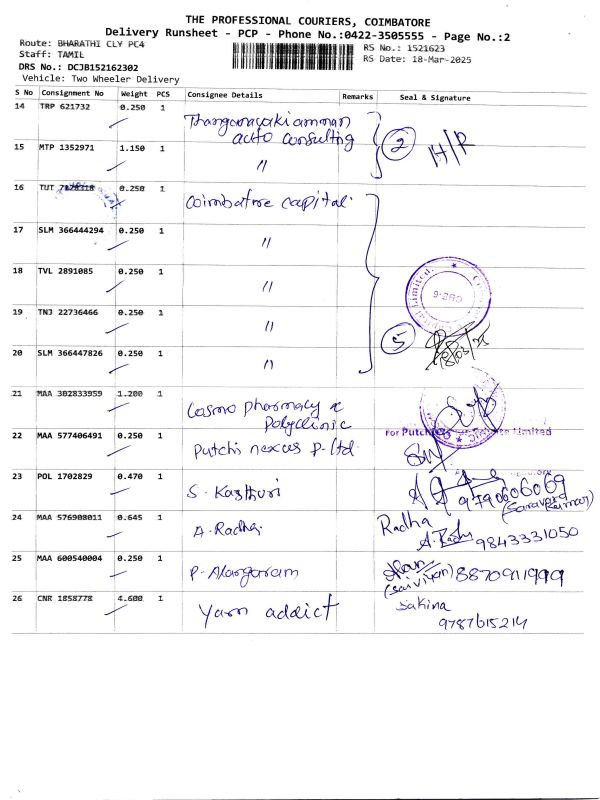 THE PROFESSIONAL COURIERS, COIMBATORE
Delivery Runsheet - PCP - Phone No.:0422-3505555 - Page No.:2
Route: BHARATHI CLY PC4
RS No.: 1521623
Staff: TAMIL
RS Date: 18-Mar-2025
DRS No.: DCJB152162302
Vehicle: Two Wheeler Delivery
S No Consignment No Weight PCS Consignee Details Remarks Seal & Signature
14 TRP 621732 0.250 1 Thanganayaki amman
auto consulting
2 H/R
15 MTP 1352971 1.150 1 "
16 TUT 0.250 1 Coimbatore capital.
17 SLM 366444294 0.250 1 "
18 TVL 2891085 0.250 1 "
Capital Limited.
CBE-6
19 TNJ 22736466 0.250 1 "
5
18/03/25
20 SLM 366447826 0.250 1 "
21 MAA 302833959 1.200 1 Cosmo pharmacy &
Polyclinic
22 MAA 577406491 0.250 1 Putchi nexus P. Ltd.
For Putchi Limited
23 POL 1702829 0.470 1 S. Kasthuri
9790606069
(Saravana Kumar)
24 MAA 576908011 0.645 1 A. Radha
Radha
9843331050
25 MAA 600540004 0.250 1 P. Alangaram
8870911999
26 CNR 1858778 4.600 1 Yarn addict
Sakina
9787615214